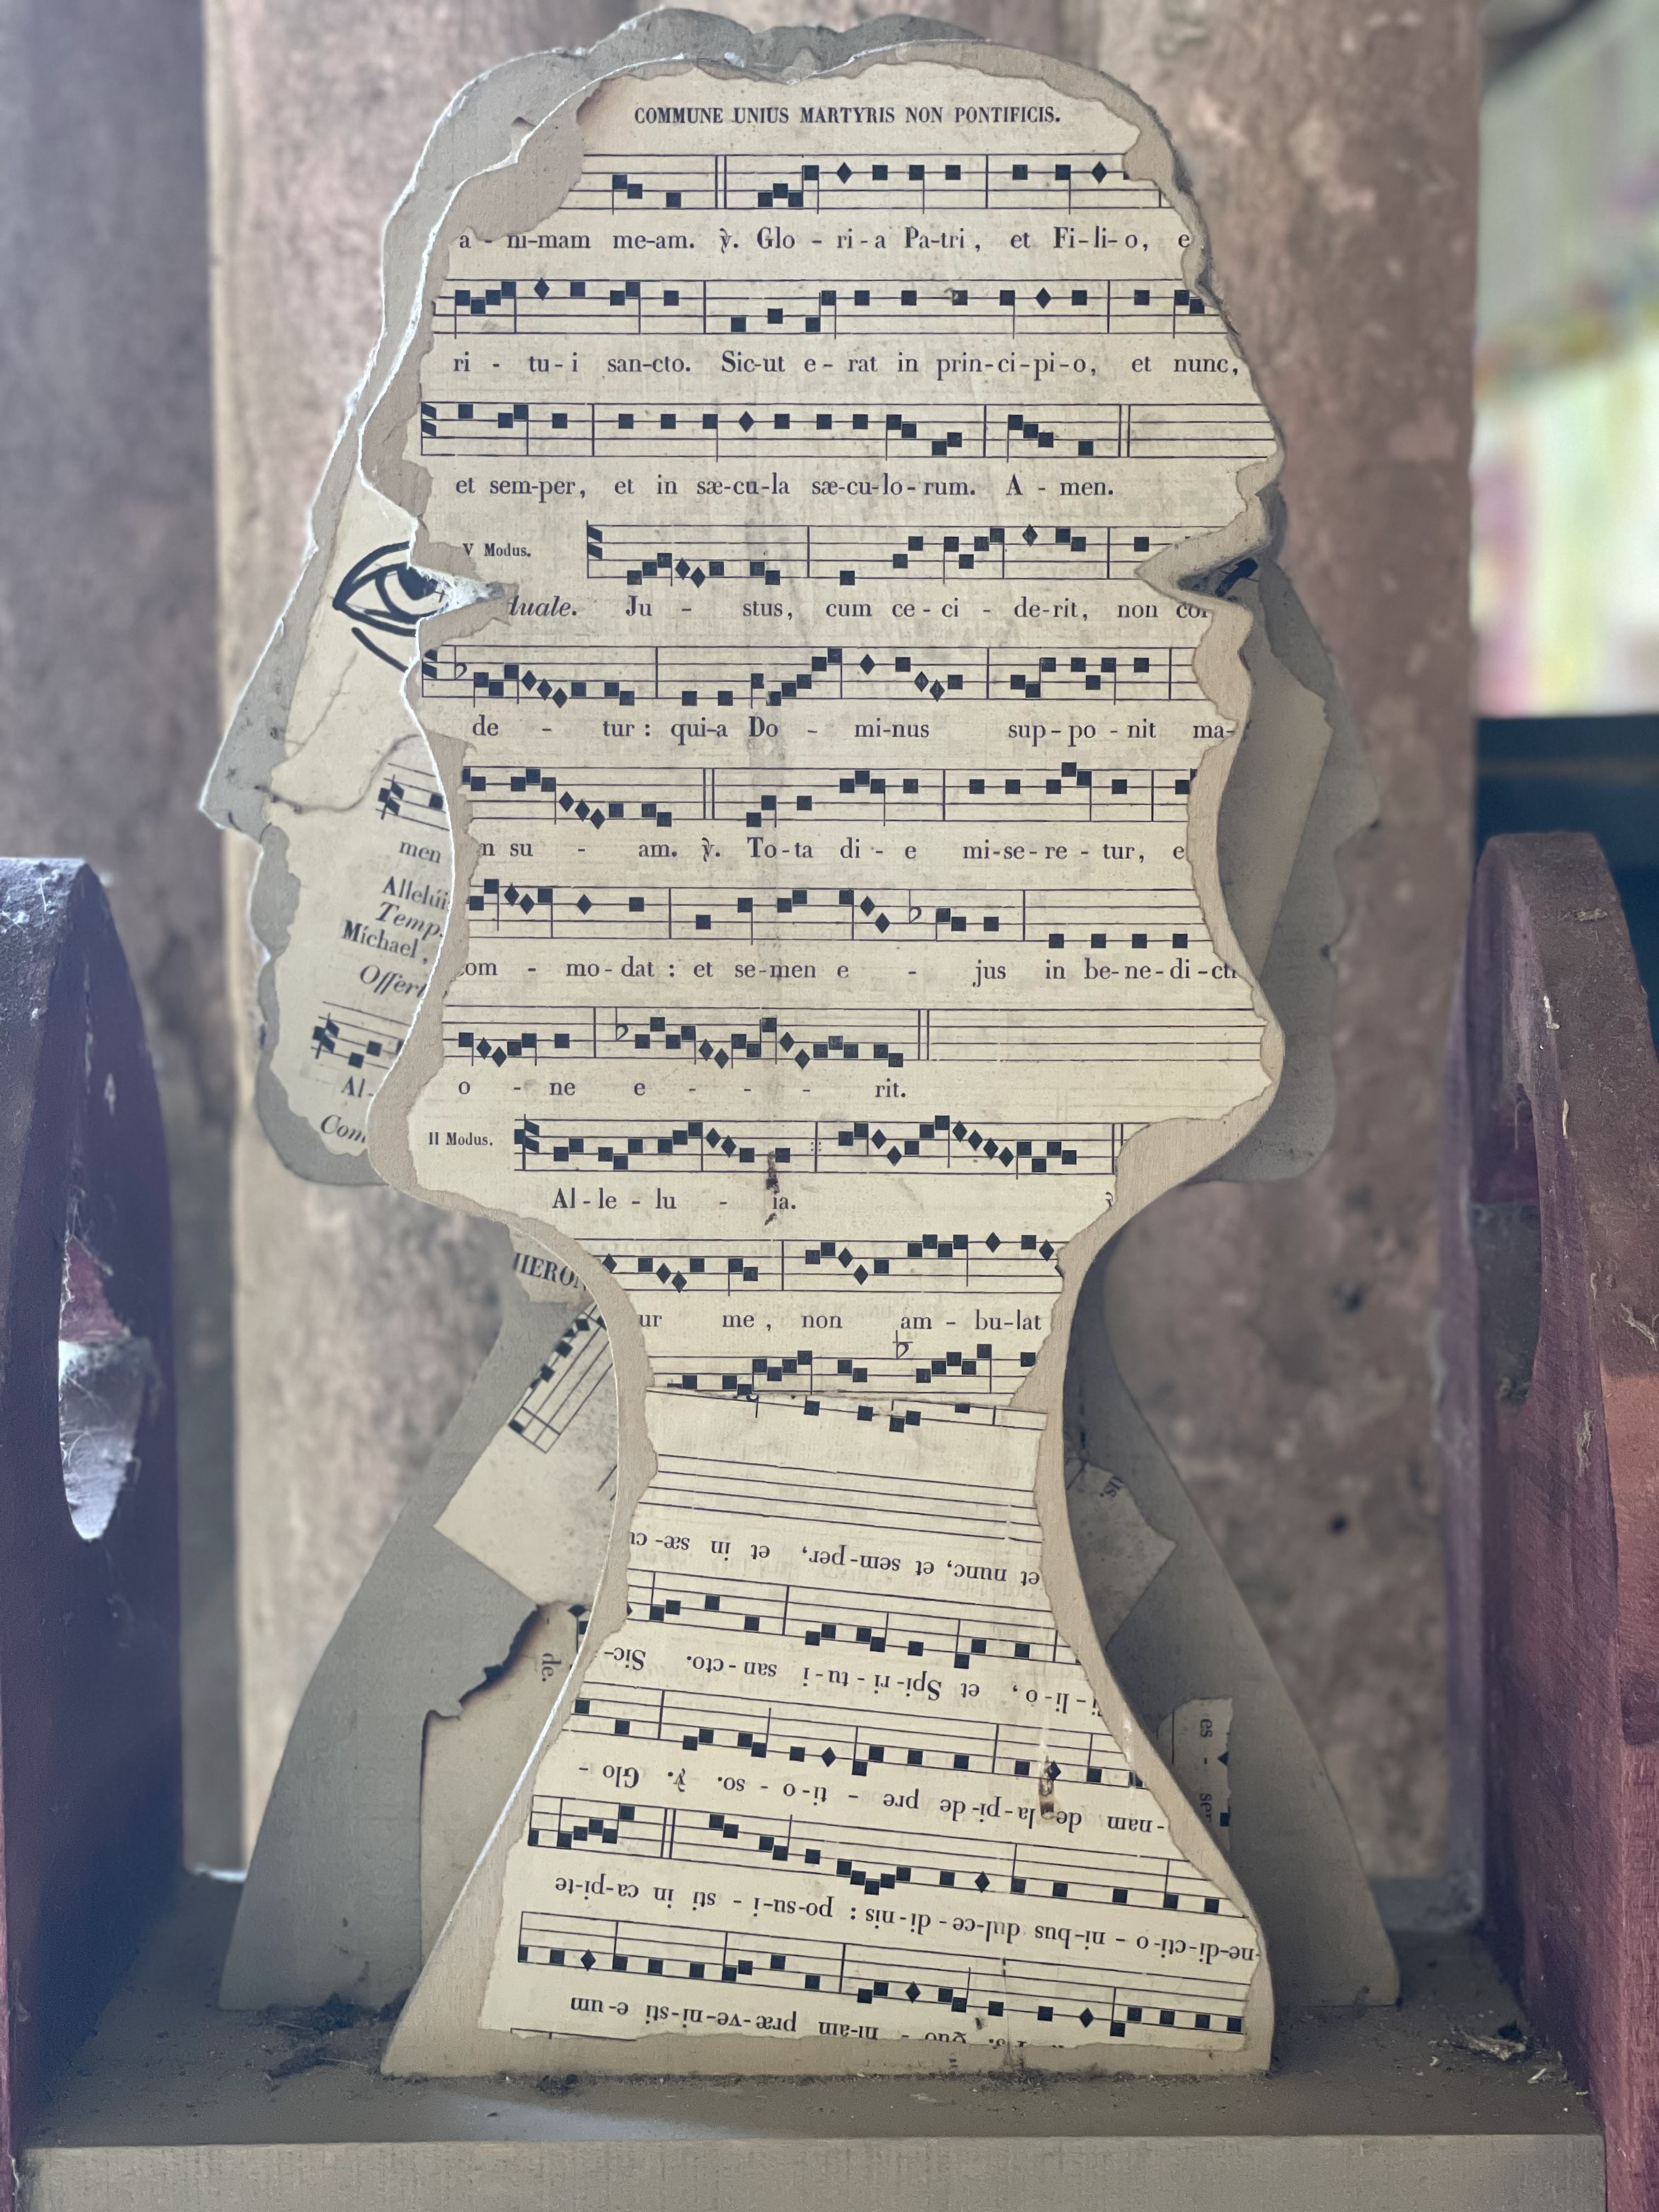 COMMUNE UNIUS MARTYRIS NON PONTIFICIS.
a - ni-mam me-am. ℣. Glo - ri - a Pa-tri, et Fi-li-o, e
ri - tu-i san-cto. Sic-ut e-rat in prin-ci-pi-o, et nunc,
et sem-per, et in sæ-cu-la sæ-cu-lo-rum. A - men.
V Modus.
duale. Ju - stus, cum ce-ci - de-rit, non col
de - tur : qui-a Do - mi-nus sup-po-nit ma-
su - am. ℣. To-ta di - e mi-se-re-tur, e
om - mo-dat : et se-men e - jus in be-ne-di-cti
o - ne e - - - rit.
II Modus.
Al-le-lu - ia.
ur me, non am - bu-lat
et nunc, et sem-per, et in sæ-cu
i-li-o, et Spi-ri-tu-i san-cto. Sic-
-nam de la-pi-de pre - ti-o - so. ℣. Glo -
-ne-di-cti-o - ni-bus dul-ce-di-nis : po-su-i - sti in ca-pi-te
quo - ni-am præ-ve-ni-sti e-um
men
Allelúi
Temp.
Míchael,
Offert
Al-
Com
HIERON
de.
us.
es - ser